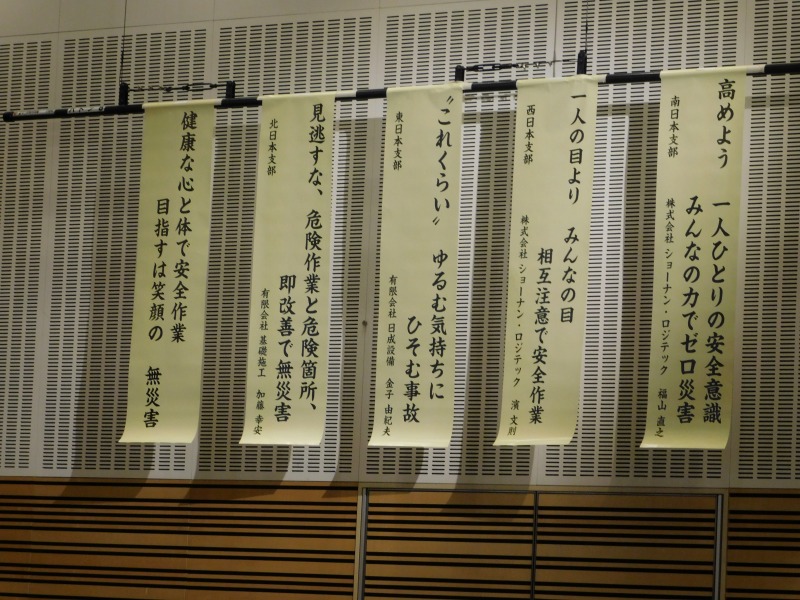 高めよう 一人ひとりの安全意識
みんなの力でゼロ災害
南日本支部 株式会社 ショーナン・ロジテック 福山 直之
一人の目より みんなの目
相互注意で安全作業
西日本支部 株式会社 ショーナン・ロジテック 濱 文則
〝これくらい〟 ゆるむ気持ちに
ひそむ事故
東日本支部 有限会社 日成設備 金子 由紀夫
見逃すな、危険作業と危険箇所、
即改善で無災害
北日本支部 有限会社 基礎施工 加藤 幸安
健康な心と体で安全作業
目指すは笑顔の 無災害